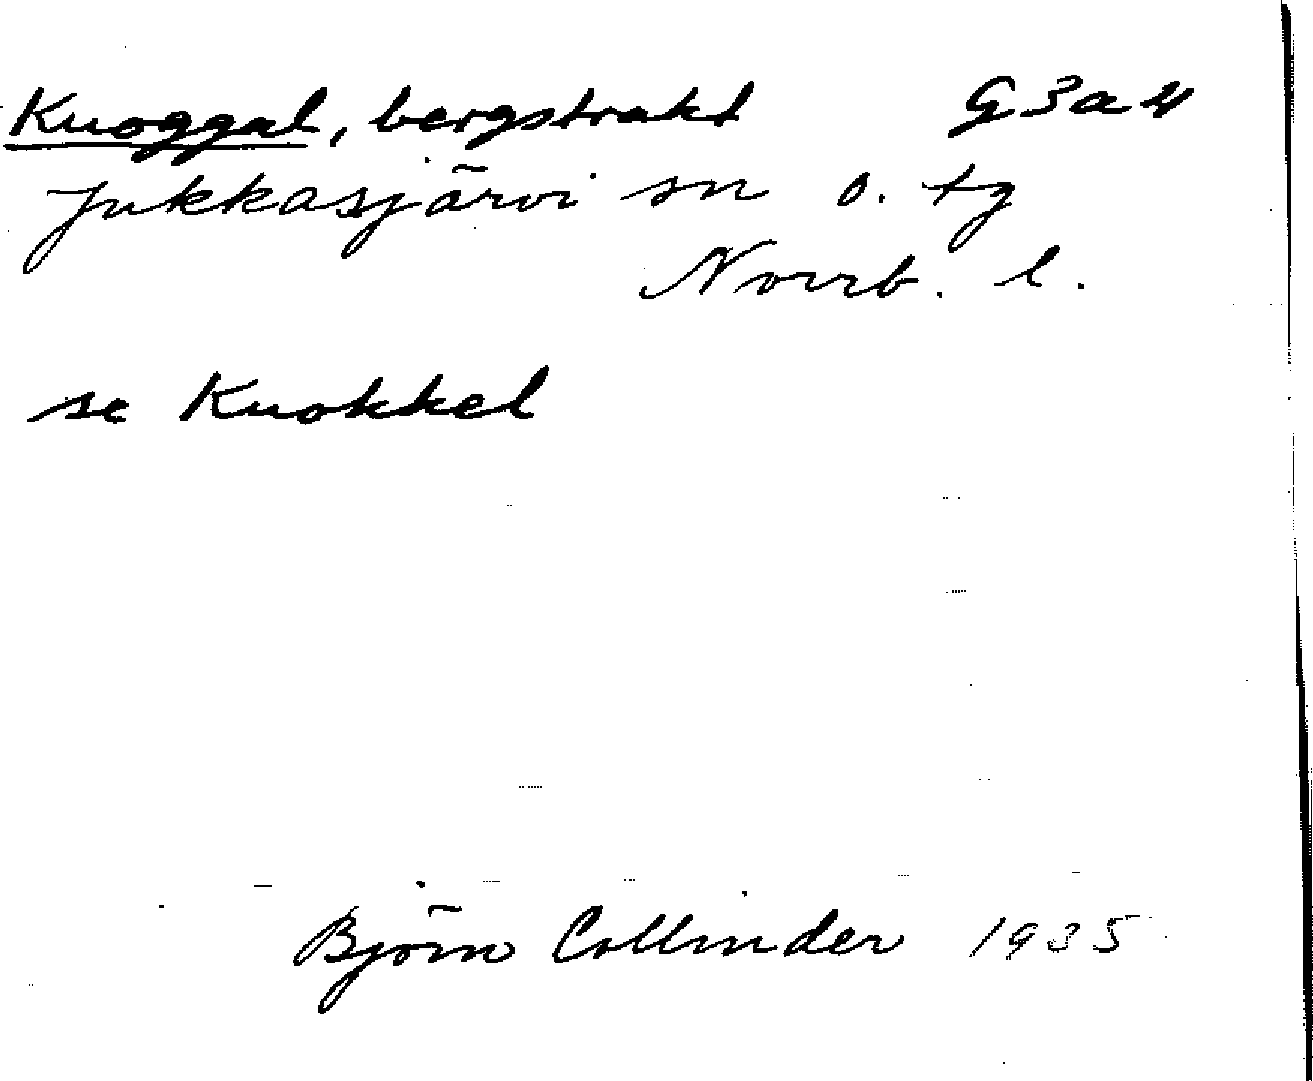 Kuoggal, bergstrakt G3a4
Jukkasjärvi sn o. tg
Norrb. l.
se Kuokkel
Björn Collinder 1935